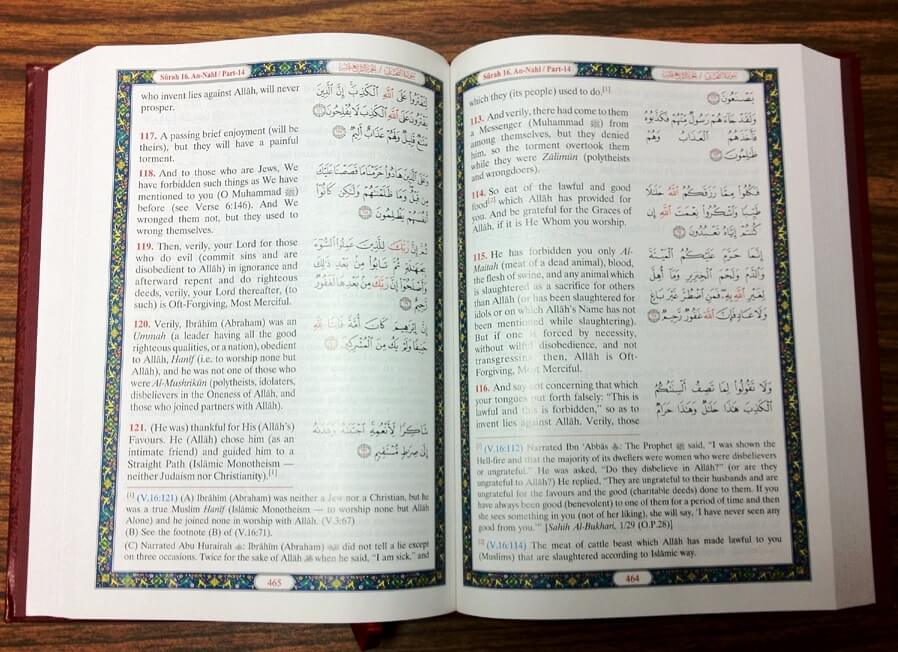 Sûrah 16. An-Nahl / Part-14
which they (its people) used to do.[1]
يَصْنَعُونَ
113. And verily, there had come to them
a Messenger (Muhammad ﷺ) from
among themselves, but they denied
him, so the torment overtook them
while they were Zâlimûn (polytheists
and wrongdoers).
وَلَقَدْ جَآءَهُمْ رَسُولٌ مِّنْهُمْ فَكَذَّبُوهُ
فَأَخَذَهُمُ ٱلْعَذَابُ وَهُمْ
ظَٰلِمُونَ
114. So eat of the lawful and good
food[2] which Allâh has provided for
you. And be grateful for the Graces of
Allâh, if it is He Whom you worship.
فَكُلُوا۟ مِمَّا رَزَقَكُمُ ٱللَّهُ حَلَٰلًا
طَيِّبًا وَٱشْكُرُوا۟ نِعْمَتَ ٱللَّهِ إِن
كُنتُمْ إِيَّاهُ تَعْبُدُونَ
115. He has forbidden you only Al-
Maitah (meat of a dead animal), blood,
the flesh of swine, and any animal which
is slaughtered as a sacrifice for others
than Allâh (or has been slaughtered for
idols or on which Allâh's Name has not
been mentioned while slaughtering).
But if one is forced by necessity,
without wilful disobedience, and not
transgressing, then, Allâh is Oft-
Forgiving, Most Merciful.
إِنَّمَا حَرَّمَ عَلَيْكُمُ ٱلْمَيْتَةَ
وَٱلدَّمَ وَلَحْمَ ٱلْخِنزِيرِ وَمَآ أُهِلَّ
لِغَيْرِ ٱللَّهِ بِهِۦ فَمَنِ ٱضْطُرَّ غَيْرَ بَاغٍ
وَلَا عَادٍ فَإِنَّ ٱللَّهَ غَفُورٌ رَّحِيمٌ
116. And say not concerning that which
your tongues put forth falsely: “This is
lawful and this is forbidden,” so as to
invent lies against Allâh. Verily, those
وَلَا تَقُولُوا۟ لِمَا تَصِفُ أَلْسِنَتُكُمُ
ٱلْكَذِبَ هَٰذَا حَلَٰلٌ وَهَٰذَا حَرَامٌ
[1] (V.16:112) Narrated Ibn ‘Abbâs: The Prophet ﷺ said, “I was shown the
Hell-fire and that the majority of its dwellers were women who were disbelievers
or ungrateful.” He was asked, “Do they disbelieve in Allâh?” (or are they
ungrateful to Allâh?) He replied, “They are ungrateful to their husbands and are
ungrateful for the favours and the good (charitable deeds) done to them. If you
have always been good (benevolent) to one of them for a period of time and then
she sees something in you (not of her liking), she will say, ‘I have never seen any
good from you.’” [Sahih Al-Bukhari, 1/29 (O.P.28)]
[2] (V.16:114) The meat of cattle beast which Allâh has made lawful to you
(Muslims) that are slaughtered according to Islâmic way.
464
Sûrah 16. An-Nahl / Part-14
who invent lies against Allâh, will never
prosper.
لِّتَفْتَرُوا۟ عَلَى ٱللَّهِ ٱلْكَذِبَ إِنَّ ٱلَّذِينَ
يَفْتَرُونَ عَلَى ٱللَّهِ ٱلْكَذِبَ لَا يُفْلِحُونَ
117. A passing brief enjoyment (will be
theirs), but they will have a painful
torment.
مَتَٰعٌ قَلِيلٌ وَلَهُمْ عَذَابٌ أَلِيمٌ
118. And to those who are Jews, We
have forbidden such things as We have
mentioned to you (O Muhammad ﷺ)
before (see Verse 6:146). And We
wronged them not, but they used to
wrong themselves.
وَعَلَى ٱلَّذِينَ هَادُوا۟ حَرَّمْنَا مَا قَصَصْنَا عَلَيْكَ
مِن قَبْلُ وَمَا ظَلَمْنَٰهُمْ وَلَٰكِن كَانُوٓا۟
أَنفُسَهُمْ يَظْلِمُونَ
119. Then, verily, your Lord for those
who do evil (commit sins and are
disobedient to Allâh) in ignorance and
afterward repent and do righteous
deeds, verily, your Lord thereafter, (to
such) is Oft-Forgiving, Most Merciful.
ثُمَّ إِنَّ رَبَّكَ لِلَّذِينَ عَمِلُوا۟ ٱلسُّوٓءَ
بِجَهَٰلَةٍ ثُمَّ تَابُوا۟ مِنۢ بَعْدِ ذَٰلِكَ
وَأَصْلَحُوٓا۟ إِنَّ رَبَّكَ مِنۢ بَعْدِهَا لَغَفُورٌ
رَّحِيمٌ
120. Verily, Ibrâhîm (Abraham) was an
Ummah (a leader having all the good
righteous qualities, or a nation), obedient
to Allâh, Hanîf (i.e. to worship none but
Allâh), and he was not one of those who
were Al-Mushrikûn (polytheists, idolaters,
disbelievers in the Oneness of Allâh, and
those who joined partners with Allâh).
إِنَّ إِبْرَٰهِيمَ كَانَ أُمَّةً قَانِتًا لِّلَّهِ
حَنِيفًا وَلَمْ يَكُ مِنَ ٱلْمُشْرِكِينَ
121. (He was) thankful for His (Allâh's)
Favours. He (Allâh) chose him (as an
intimate friend) and guided him to a
Straight Path (Islâmic Monotheism —
neither Judaism nor Christianity).[1]
شَاكِرًا لِّأَنْعُمِهِ ٱجْتَبَىٰهُ وَهَدَىٰهُ
إِلَىٰ صِرَٰطٍ مُّسْتَقِيمٍ
[1] (V.16:121) (A) Ibrâhîm (Abraham) was neither a Jew nor a Christian, but he
was a true Muslim Hanîf (Islâmic Monotheism — to worship none but Allâh
Alone) and he joined none in worship with Allâh. (V.3:67)
(B) See the footnote (B) of (V.16:71).
(C) Narrated Abu Hurairah: Ibrâhîm (Abraham) did not tell a lie except
on three occasions. Twice for the sake of Allâh when he said, “I am sick,” and
465